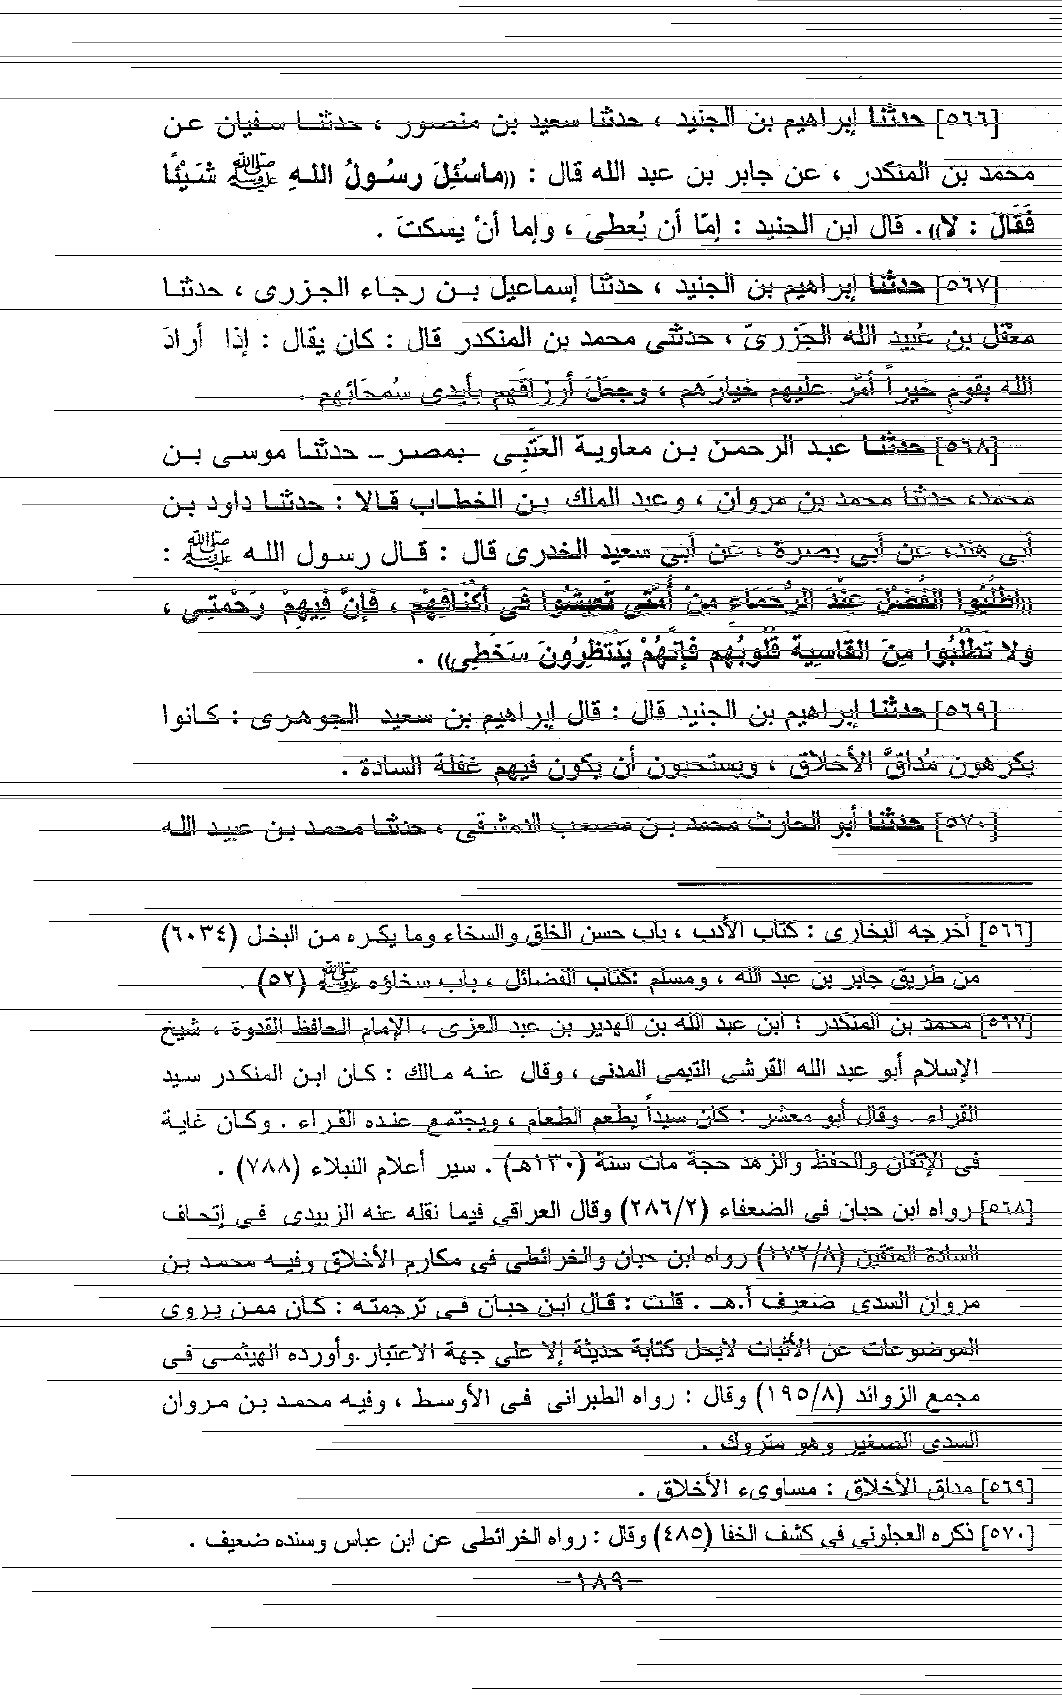 [٥٦٦] حدثنا إبراهيم بن الجنيد ، حدثنا سعيد بن منصور ، حدثنا سفيان عن
محمد بن المنكدر ، عن جابر بن عبد الله قال : ((ماسُئِلَ رسُولُ اللهِ ﷺ شَيْئًا
فَقَالَ : لا)) . قال ابن الجنيد : إمّا أن يُعطىَ ، وإما أنْ يسكتَ .
[٥٦٧] حدثنا إبراهيم بن الجنيد ، حدثنا إسماعيل بن رجاء الجزرى ، حدثنا
معقل بن عُبيد الله الجَزرىّ ، حدثنى محمد بن المنكدر قال : كان يقال : إذا أرادَ
الله بقومٍ خيراً أمَّر عليهم خيارَهم ، وجعَلَ أرزاقَهم بأيدى سُمحَائِهم .
[٥٦٨] حدثنا عبد الرحمن بن معاوية العَتَبِى -بمصر- حدثنا موسى بن
محمد، حدثنا محمد بن مروان ، وعبد الملك بن الخطاب قالا : حدثنا داود بن
أبى هند، عن أبى بصرة ، عن أبى سعيد الخدرى قال : قال رسول الله ﷺ :
((اطْلُبُوا الفَضْلَ عِنْدَ الرُّحَمَاءِ مِنْ أُمَّتِى تَعِيشُوا فى أَكْنَافِهْم ، فَإنَّ فِيهِمْ رَحْمتِى ،
ولا تَطْلُبُوا مِنَ القَاسِيةَ قُلُوبُهم فَإنَّهُمْ يَنْتَظِرُونَ سَخَطِى)) .
[٥٦٩] حدثنا إبراهيم بن الجنيد قال : قال إبراهيم بن سعيد الجوهرى : كانوا
يكرهون مُداقَّ الأخلاق ، ويستحبون أن يكون فيهم غفلة السادة .
[٥٧٠] حدثنا أبو الحارث محمد بن مصعب الدمشقى ، حدثنا محمد بن عبيد الله
[٥٦٦] أخرجه البخارى : كتاب الأدب ، باب حسن الخلق والسخاء وما يكره من البخل (٦٠٣٤)
من طريق جابر بن عبد الله ، ومسلم :كتاب الفضائل ، باب سخاؤه ﷺ (٥٢) .
[٥٦٧] محمد بن المنكدر : ابن عبد الله بن الهدير بن عبد العزى ، الإمام الحافظ القدوة ، شيخ
الإسلام أبو عبد الله القرشى التيمى المدنى ، وقال عنه مالك : كان ابن المنكدر سيد
القراء . وقال أبو معشر : كان سيداً يطعم الطعام ، ويجتمع عنده القراء . وكان غاية
فى الإتقان والحفظ والزهد حجة مات سنة (١٣٠هـ) . سير أعلام النبلاء (٧٨٨) .
[٥٦٨] رواه ابن حبان فى الضعفاء (٢٨٦/٢) وقال العراقي فيما نقله عنه الزبيدى فى إتحاف
السادة المتقين (١٧٢/٨) رواه ابن حبان والخرائطى فى مكارم الأخلاق وفيه محمد بن
مروان السدى ضعيف أ.هـ . قلت : قال ابن حبان فى ترجمته : كان ممن يروى
الموضوعات عن الأثبات لايحل كتابة حديثة إلا على جهة الاعتبار.وأورده الهيثمى فى
مجمع الزوائد (١٩٥/٨) وقال : رواه الطبرانى فى الأوسط ، وفيه محمد بن مروان
السدى الصغير وهو متروك .
[٥٦٩] مداق الأخلاق : مساوىء الأخلاق .
[٥٧٠] ذكره العجلونى فى كشف الخفا (٤٨٥) وقال : رواه الخرائطى عن ابن عباس وسنده ضعيف .
-١٨٩-